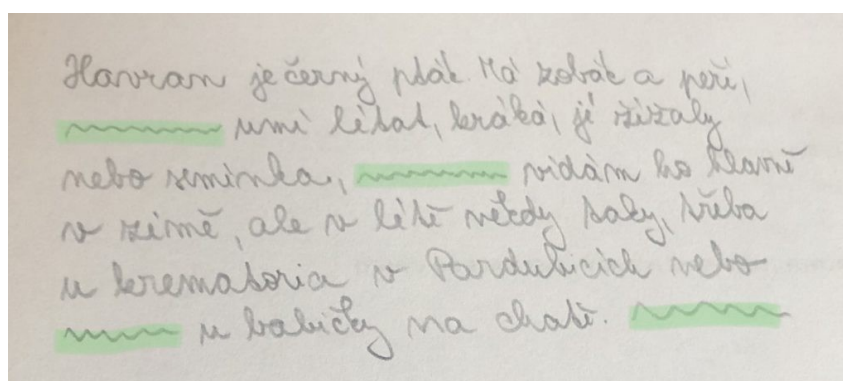 Havran je černý pták. Má zobák a peří,
umí létat, kráká, jí žížaly
nebo semínka, vídám ho hlavně
v zimě, ale v létě někdy taky, třeba
u krematoria v Pardubicích nebo
u babičky na chatě.